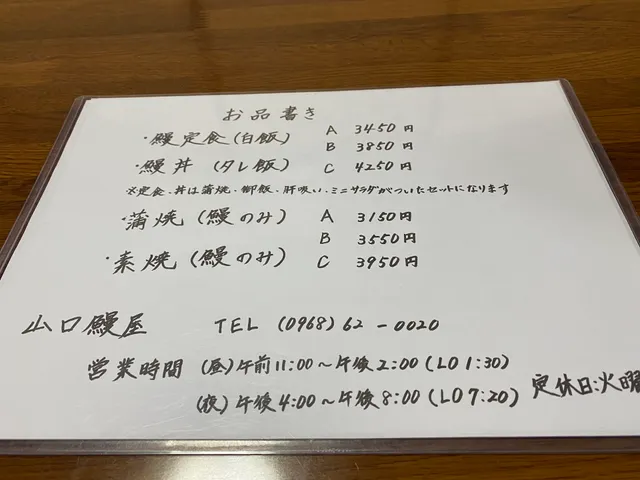 お品書き
・鰻定食(白飯) A 3450円
B 3850円
・鰻丼(タレ飯) C 4250円
※定食、丼は蒲焼・御飯・肝吸い・ミニサラダがついたセットになります
・蒲焼(鰻のみ) A 3150円
B 3550円
・素焼(鰻のみ) C 3950円
山口鰻屋 TEL (0968)62-0020
営業時間 (昼)午前11:00~午後2:00(LO1:30)
(夜)午後4:00~午後8:00(LO7:20) 定休日:火曜